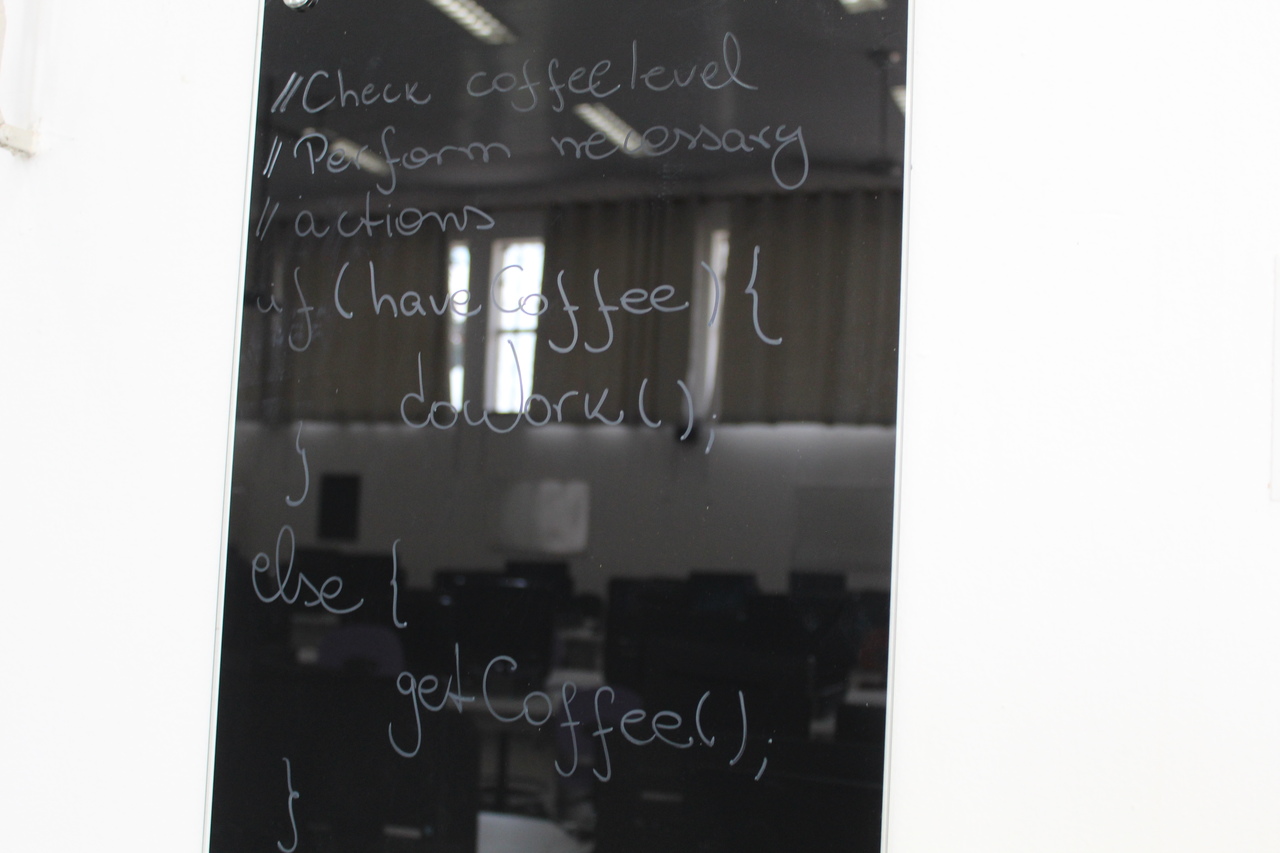 //Check coffee level
// Perform necessary
// actions
if (haveCoffee) {
doWork();
}
else {
getCoffee();
}